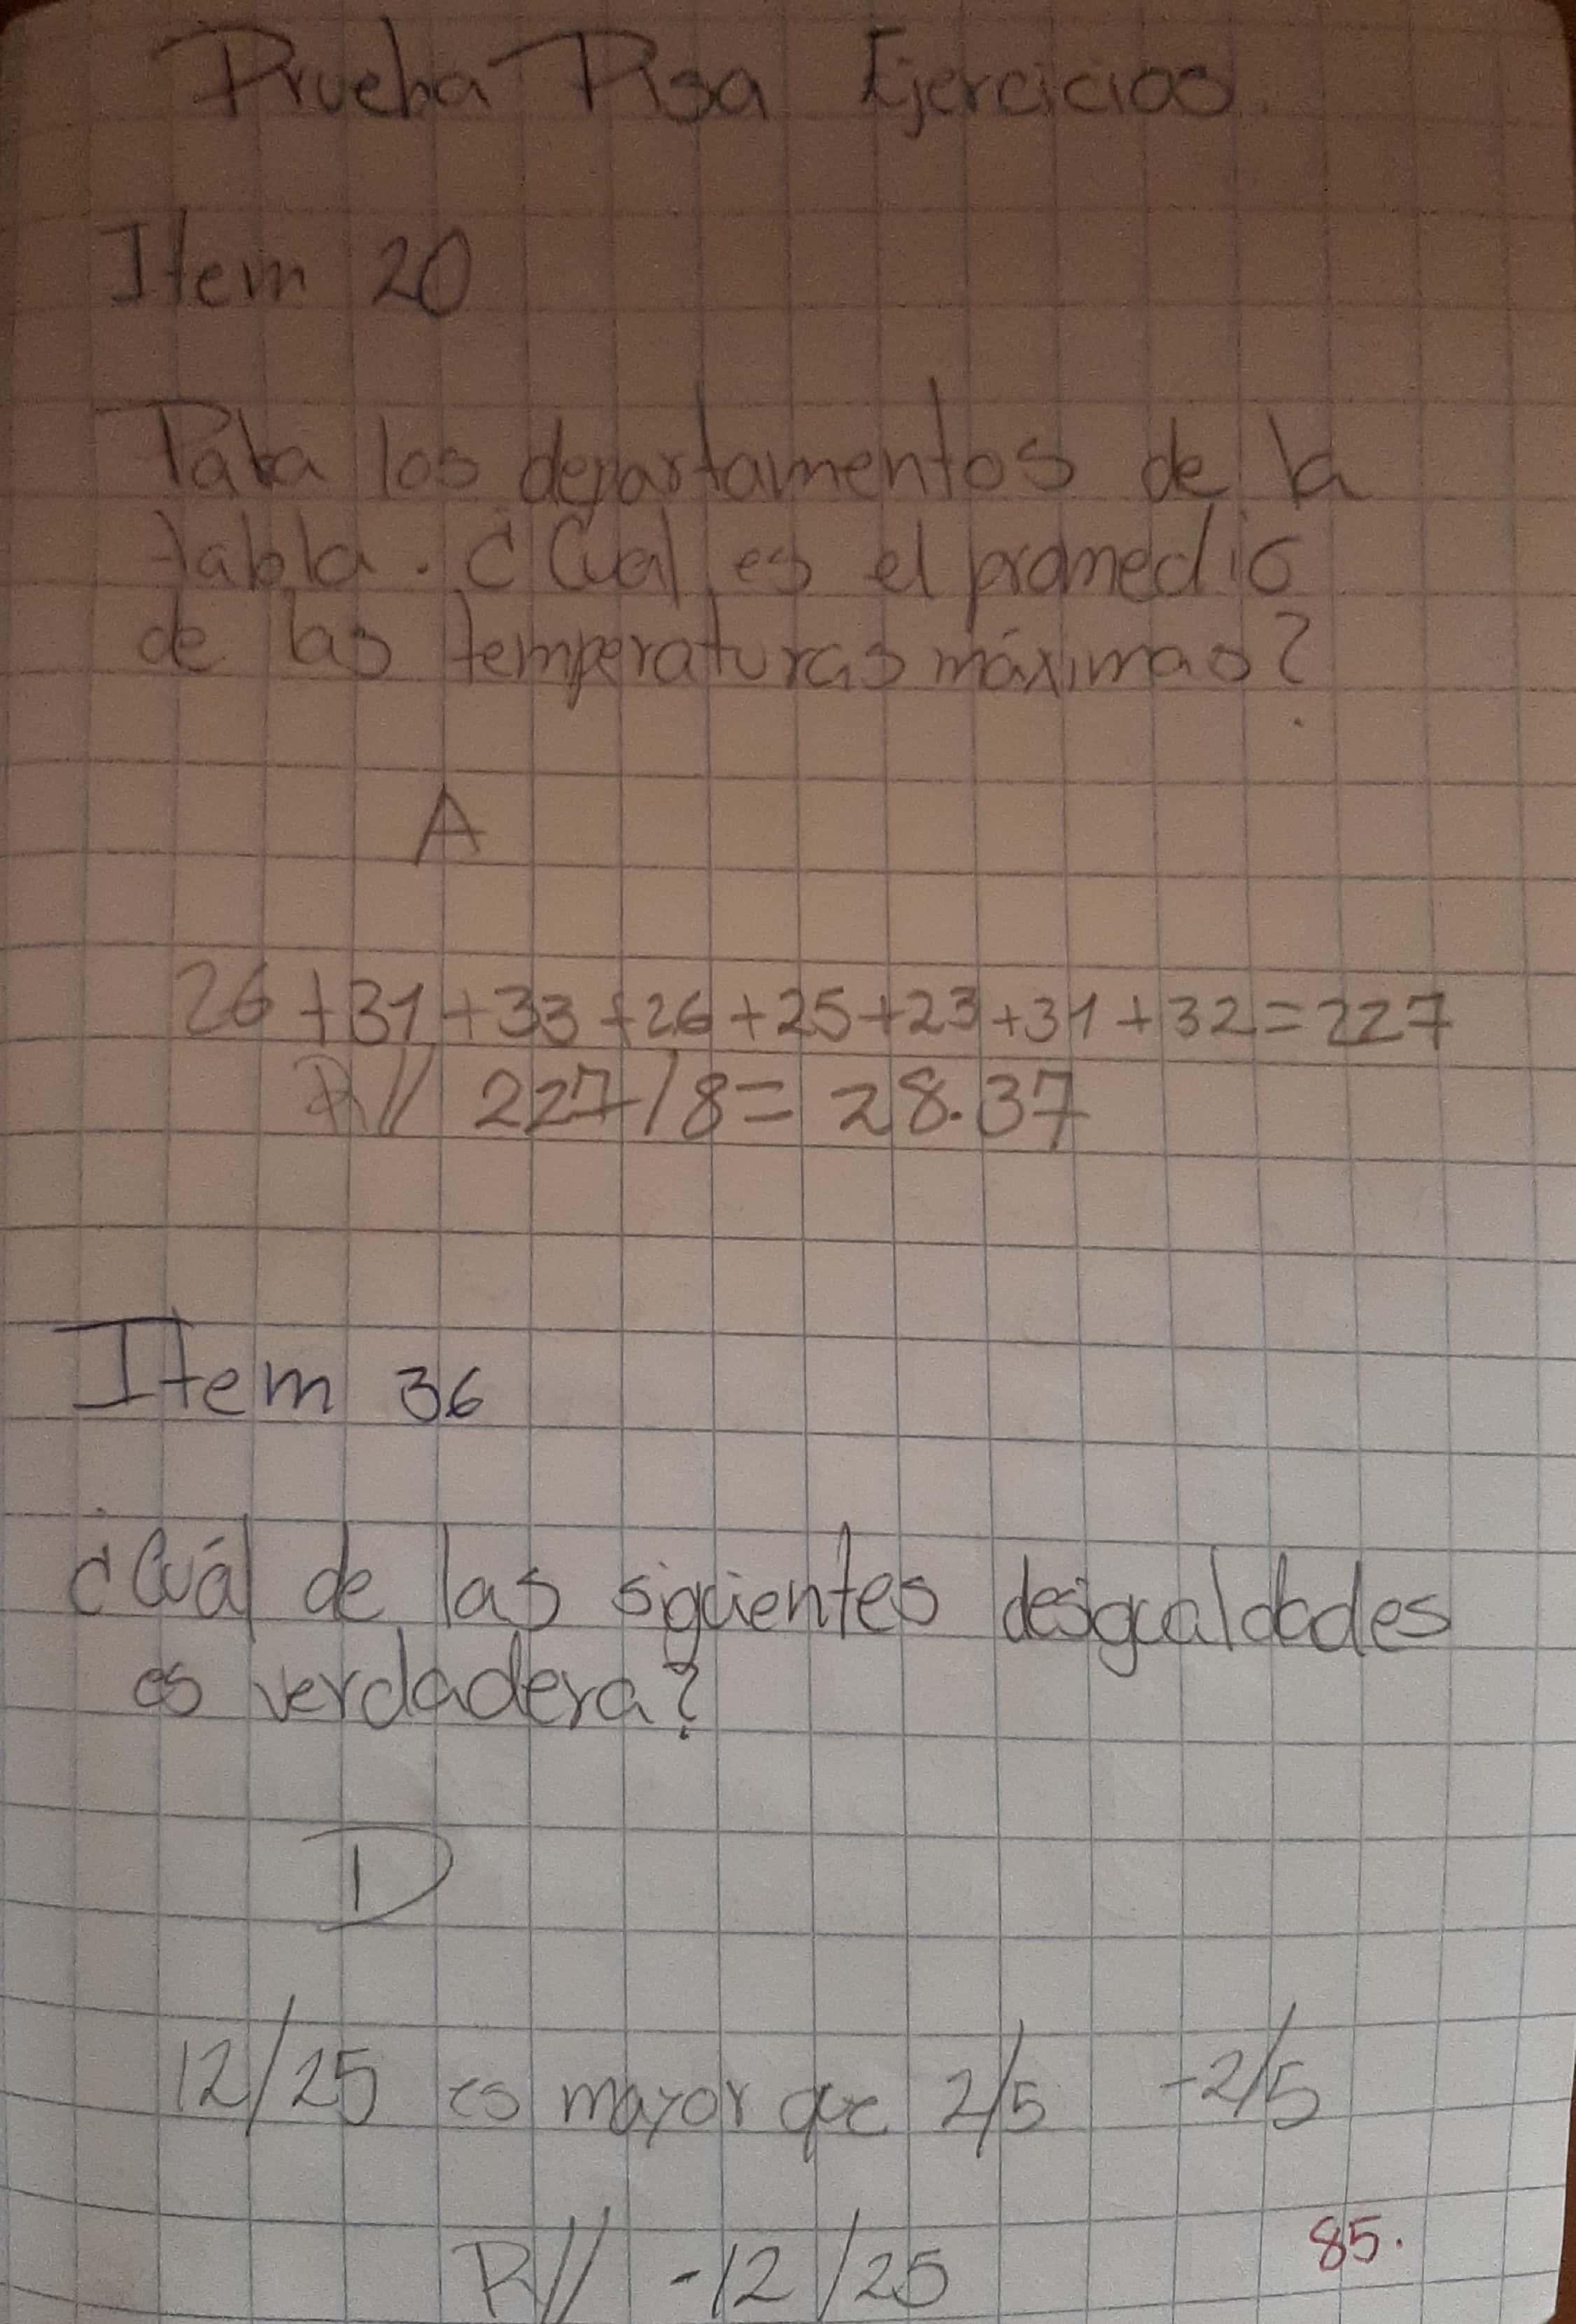 Prueba Pisa Ejercicios.
Item 20
Para los departamentos de la
tabla. ¿Cual es el promedio
de las temperaturas máximas?
A
26+31+33+26+25+23+31+32=227
R// 227/8= 28.37
Item 36
¿Cuál de las siguientes desigualdades
es verdadera?
D
12/25 es mayor que 2/5 -2/5
R// -12/25
85.